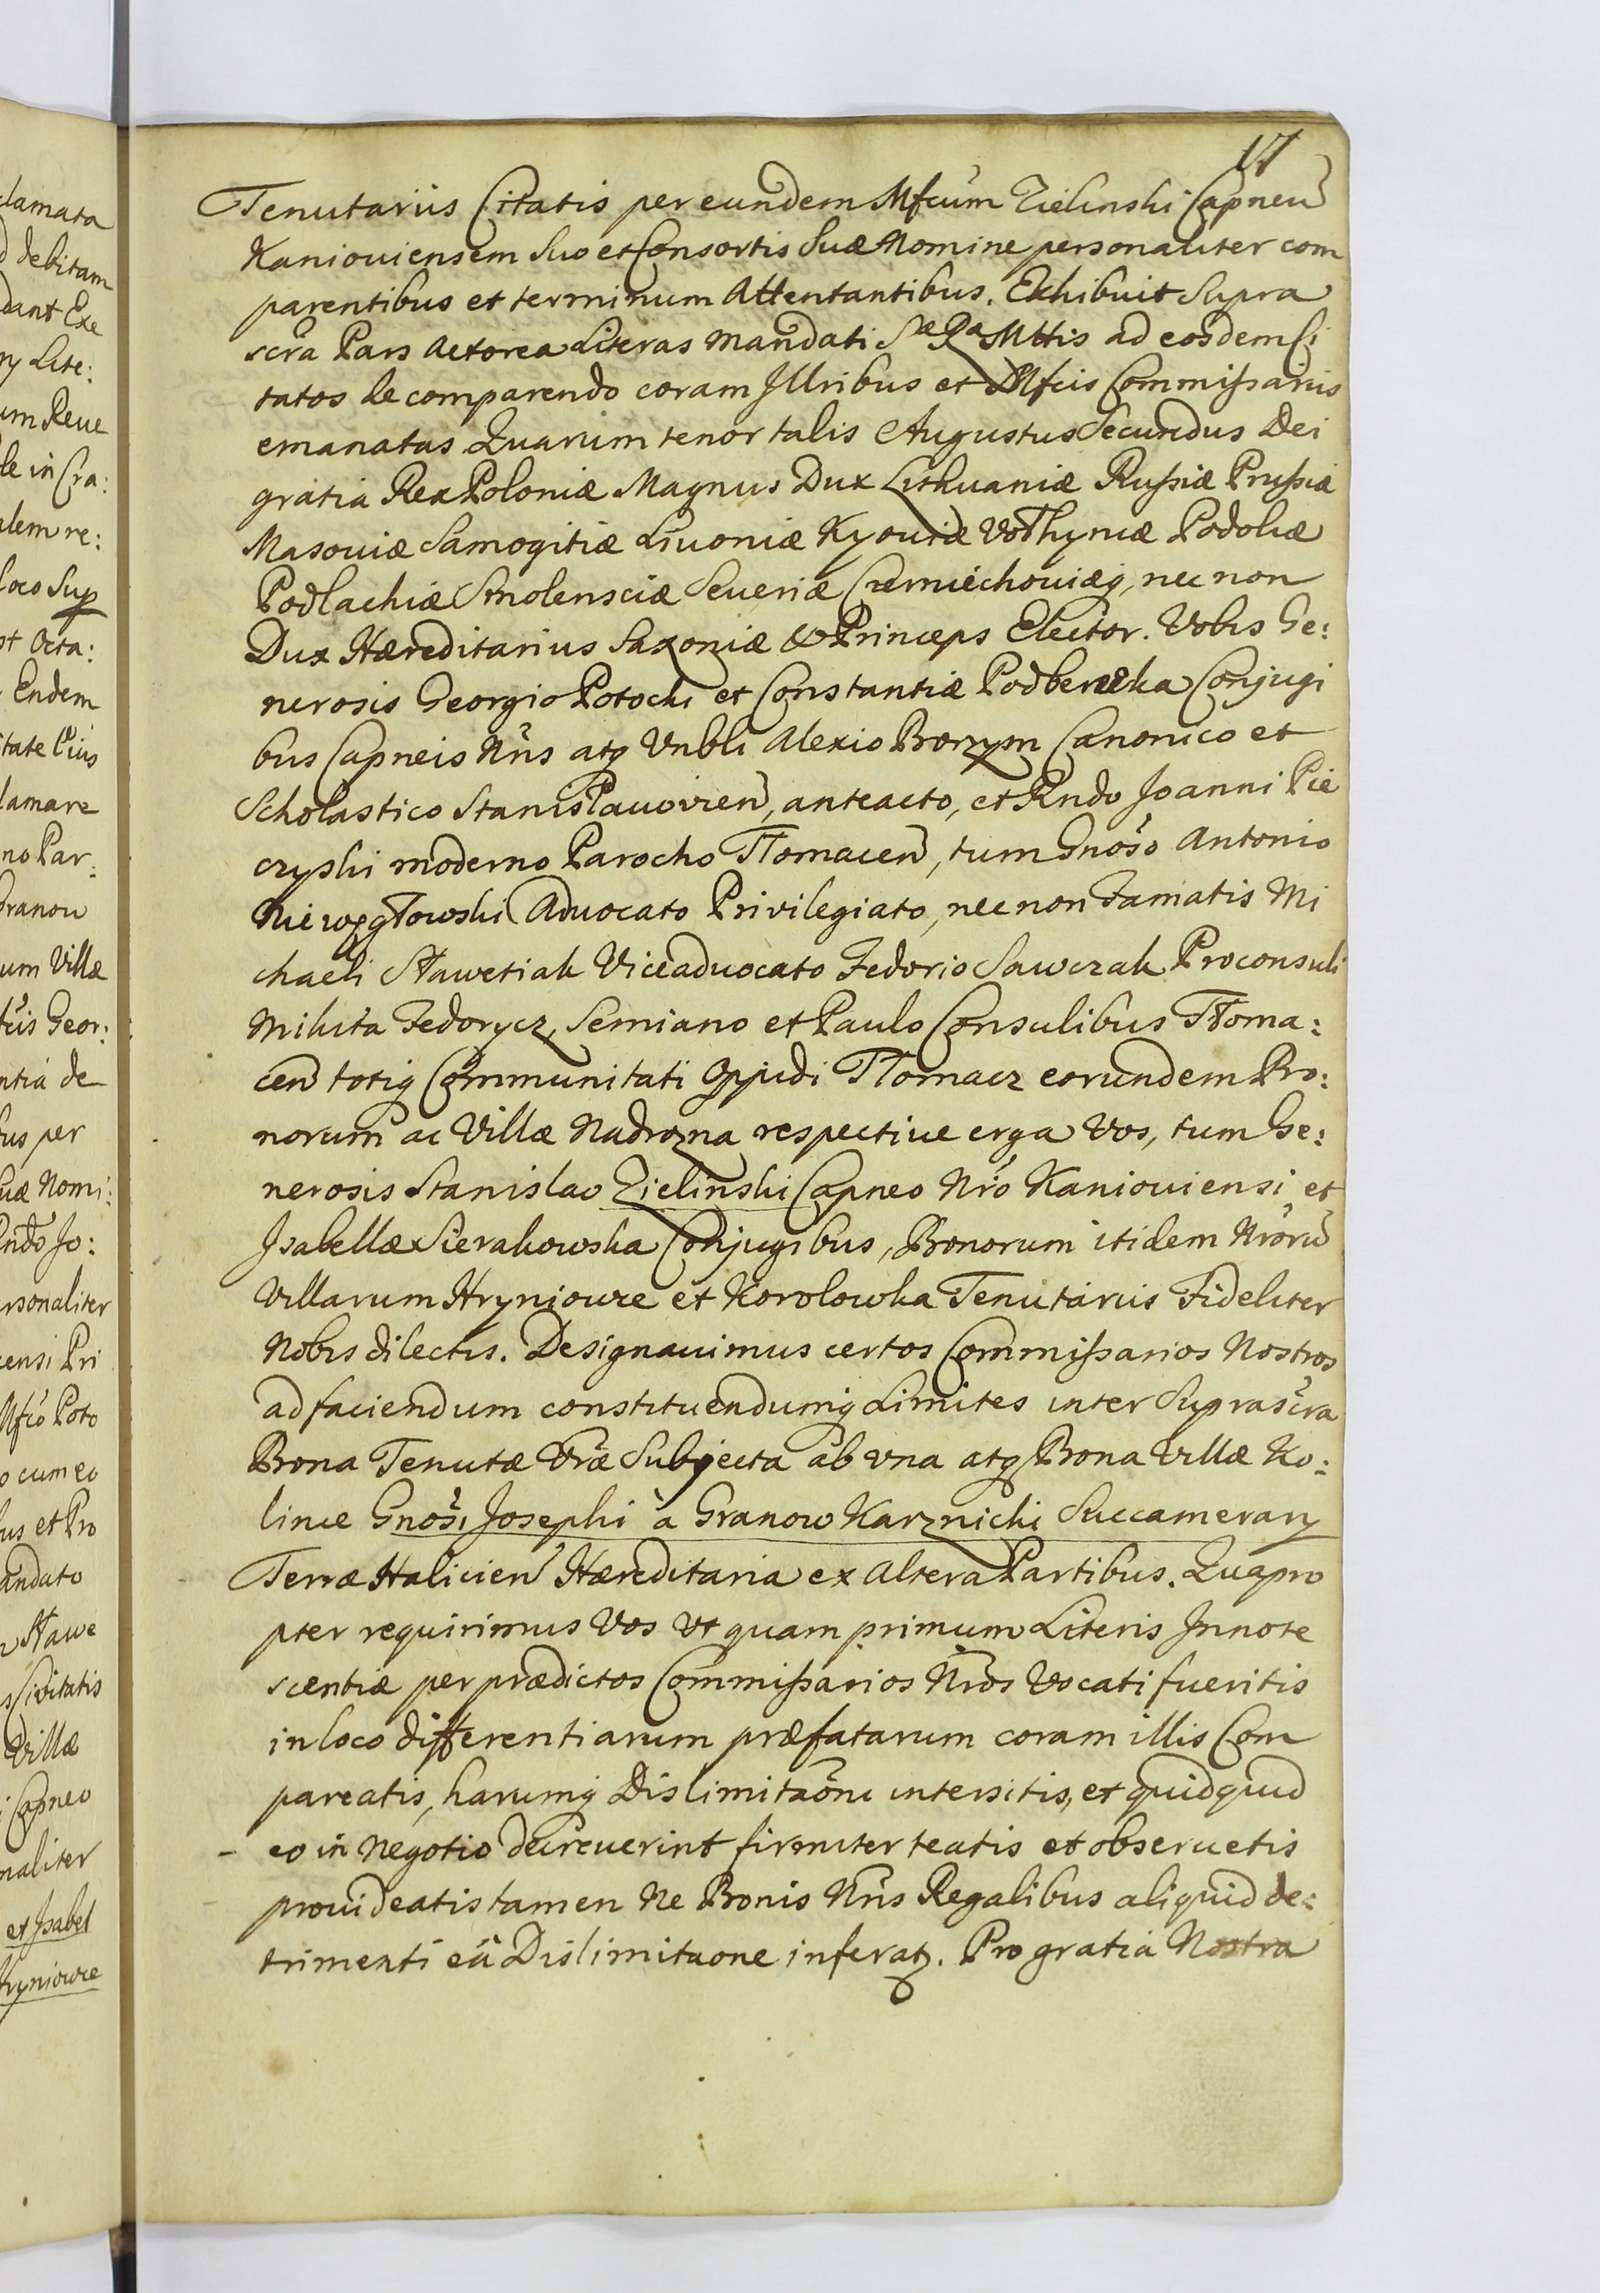 17
Tenutariis Citatis per eundem Mfcum Zielinski Capneū
Kaniouiensem Suo et Consortis Suæ Nomine personaliter com
parentibus et terminum Attentantibus. Exhibuit Supra
scrā Pars Actorea Literas Mandati Sæ Ræ Mttis ad eosdem Ci
tatos de comparendo coram Illribus et Mfcis Commissariis
emanatas Quarum tenor talis Augustus Secundus Dei
gratia Rex Poloniæ Magnus Dux Lithuaniæ Russiæ Prussiæ
Masouiæ Samogitiæ Liuoniæ Kyouiæ Vołhyniæ Podoliæ
Podlachiæ Smolensciæ Seueriæ Czerniechouiæq, nec non
Dux Hæreditarius Saxoniæ & Princeps Elector. Vobis Ge:
nerosis Georgio Potocki et Constantiæ Podbereska Conjugi
bus Capneis Nris atq Vnbli Alexio Borzym Canonico et
Scholastico Stanisławovien, anteacto, et Rndo Joanni Pie
czyski moderno Parocho Tłomacen, tum Gnoso Antonio
Niewęgłowski Aduocato Privilegiato, nec non Famatis Mi
chaeli Sławetiak Viceaduocato Fedorio Sawczak Proconsuli
Mikita Fedorycz, Semiano et Paulo Consulibus Tłoma:
cen totiq Communitati Oppidi Tłomacz eorundem Bo:
norum ac Villæ Nadrozna respectiue erga Vos, tum Ge:
nerosis Stanislao Zielinski Capneo Nrō Kaniouiensi et
Isabellæ Sierakowska Conjugibus, Bonorum itidem Nrorū
Villarum Hryniowce et Korolowka Tenutariis Fideliter
Nobis dilectis. Designauimus certos Commissarios Nostros
ad faciendum constituendumq Limites inter Suprascrā
Bona Tenutæ Vræ Subjecta ab vna atq Bona Villæ Ko:
lince Gnosi Josephi à Granow Karznicki Succamerary
Terræ Halicien Hæreditaria ex Altera Partibus. Quapro
pter requirimus Vos Vt quam primum Literis Innote
scentiæ per prædictos Commissarios Nros Vocati fueritis
in loco differentiarum præfatarum coram illis Com
pareatis, harumq Dislimitaōni intersitis, et quidquid
eo in Negotio decreuerint firmiter teatis et obseruetis
prouideatis tamen Ne Bonis Nris Regalibus aliquid de:
trimenti eâ Dislimitaone inferatq. Pro gratia Nostra